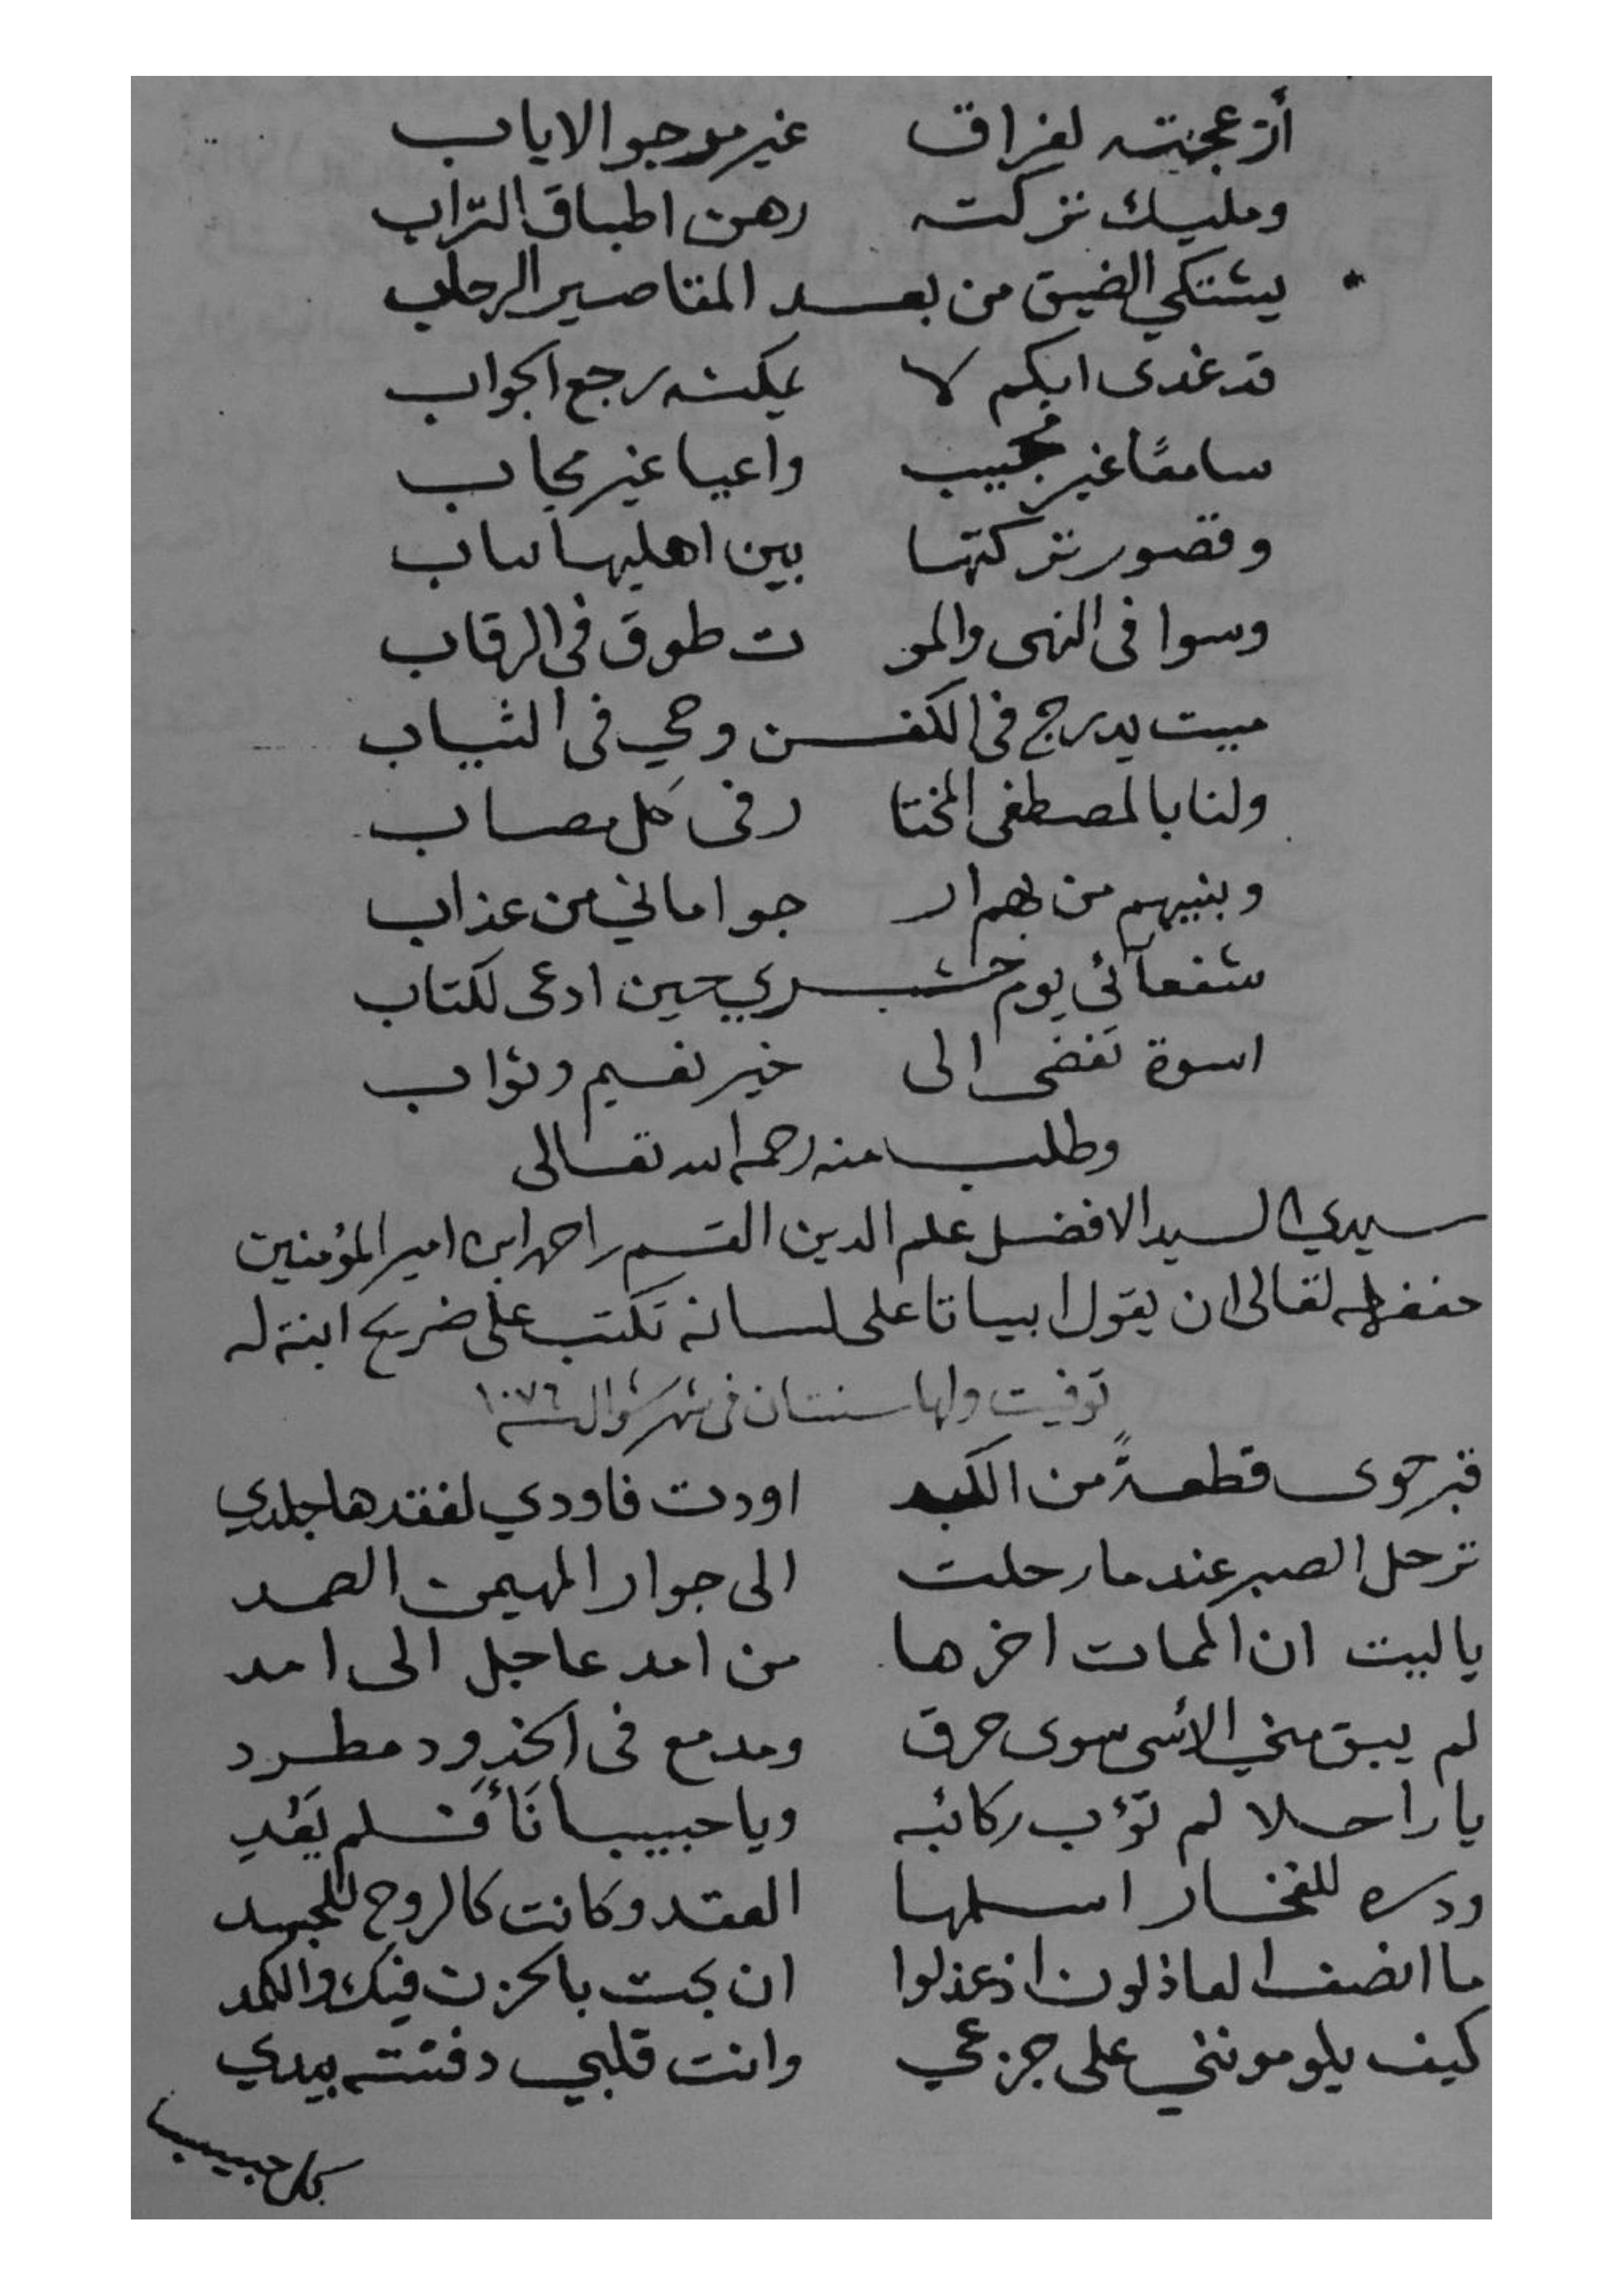 أزعجته لفراق غير مرجو الاياب
ومليك تركته رهن اطباق التراب
يشتكي الضيق من بعد المقاصير الرحاب
قد غدى ابكم لا يمكنه رجع الجواب
سامعًا غير مجيب واعيا غير مجاب
وقصور تركتها بين اهليها
وسوا فى النهى والمو ت طوق فى الرقاب
ميت يدرج فى الكفن وحي فى الثياب
ولنا بالمصطفى المختا ر فى كل مصاب
وبنيهم من بهم ار جو اماني من عذاب
شفعائى يوم حشري حين ادعى لكتاب
اسوة تفضى الى خير نعيم وثواب
وطلب منه رحمه الله تعالى
سيدي السيد الافضل علم الدين القسم بن امير المؤمنين
حفظه الله تعالى ان يقول ابياتا على لسانه تكتب على ضريح ابنة له
توفيت ولها سنتان فى شهر شوال سنة ١٠٧٦
قبر حوى قطعةً من الكبد اودت فاودي لفقدها جلدي
ترحل الصبر عندما رحلت الى جوار المهيمن الصمد
يا ليت ان الممات اخرها من امد عاجل الى امد
لم يبق مني الأسى سوى حرق ومدمع فى الخدود مطرد
يا راحلا لم تؤب ركائبه ويا حبيبا نَأَى فلم يَعُدِ
ودره للفخار اسلمها العقد وكانت كالروح للجسد
ما انصف العاذلون اذ عذلوا ان بحت بالحزن فيك والكمد
كيف يلومونني على جزعي وانت قلبي دفنته بيدي
حبيب